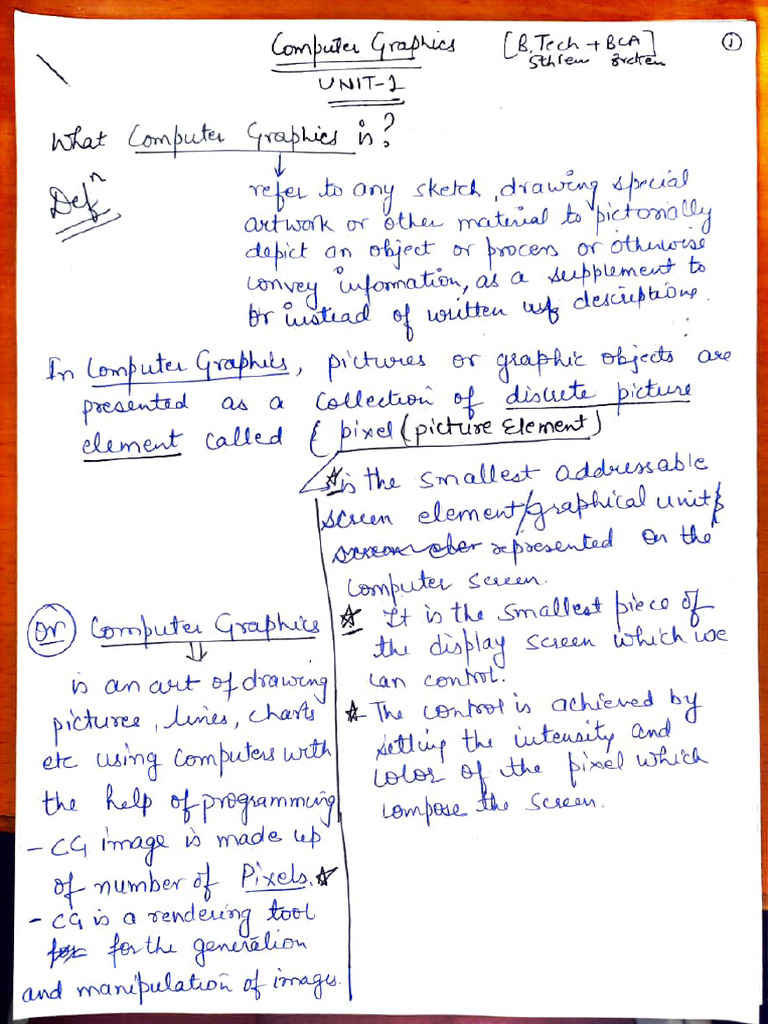 Computer Graphics [B.Tech + BCA] 1
5th sem 3rd sem
UNIT-1
What Computer Graphics is?
Defⁿ
refer to any sketch, drawing special
artwork or other material to pictorially
depict an object or process or otherwise
convey information, as a supplement to
or instead of written descriptions.
In Computer Graphics, pictures or graphic objects are
presented as a collection of discrete picture
element called { pixel (picture Element)
☆ is the smallest addressable
screen element/graphical unit
represented on the
computer screen.
☆ It is the smallest piece of
the display screen which we
can control.
☆ The control is achieved by
setting the intensity and
color of the pixel which
compose the screen.
Or Computer Graphics
is an art of drawing
pictures, lines, charts
etc using computers with
the help of programming
- CG image is made up
of number of Pixels.☆
- CG is a rendering tool
for the generation
and manipulation of images.